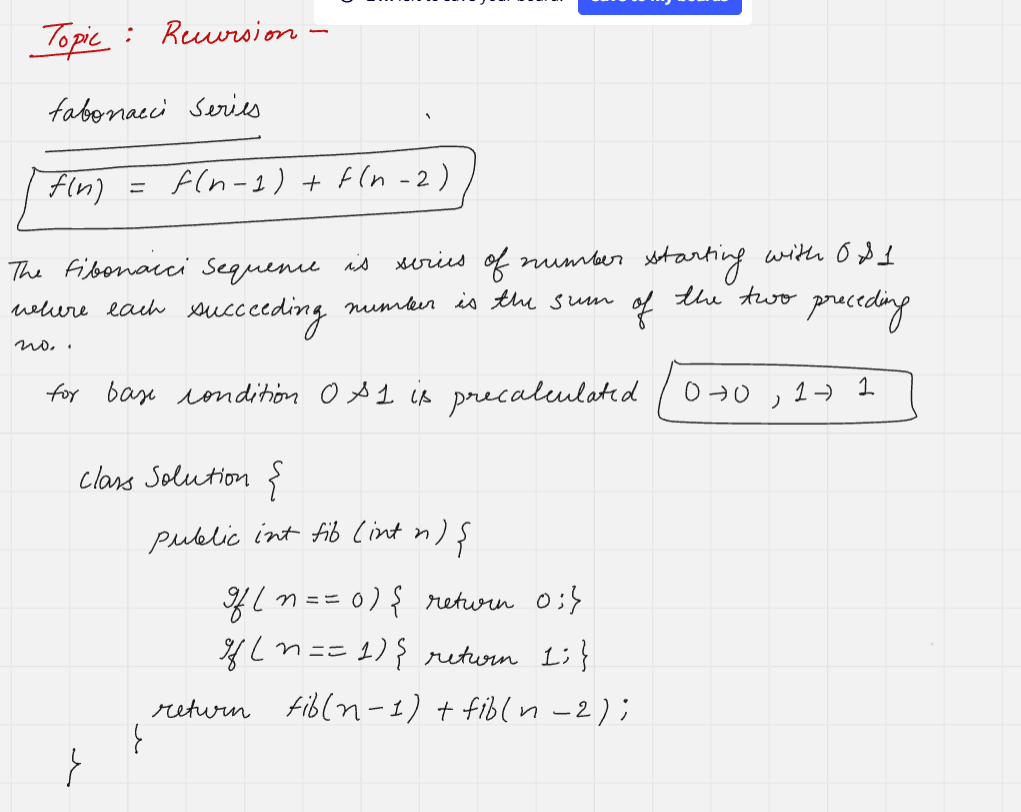 Topic : Recursion -
fabonacci Series
f(n) = f(n-1) + f(n-2)
The Fibonacci Sequence is series of number starting with 0 & 1
where each succeeding number is the sum of the two preceding
no..
for base condition 0 & 1 is precalculated 0→0 , 1→ 1
class Solution {
public int fib (int n) {
if ( n == 0) { return 0;}
if ( n == 1) { return 1; }
return fib(n-1) + fib(n-2);
}
}